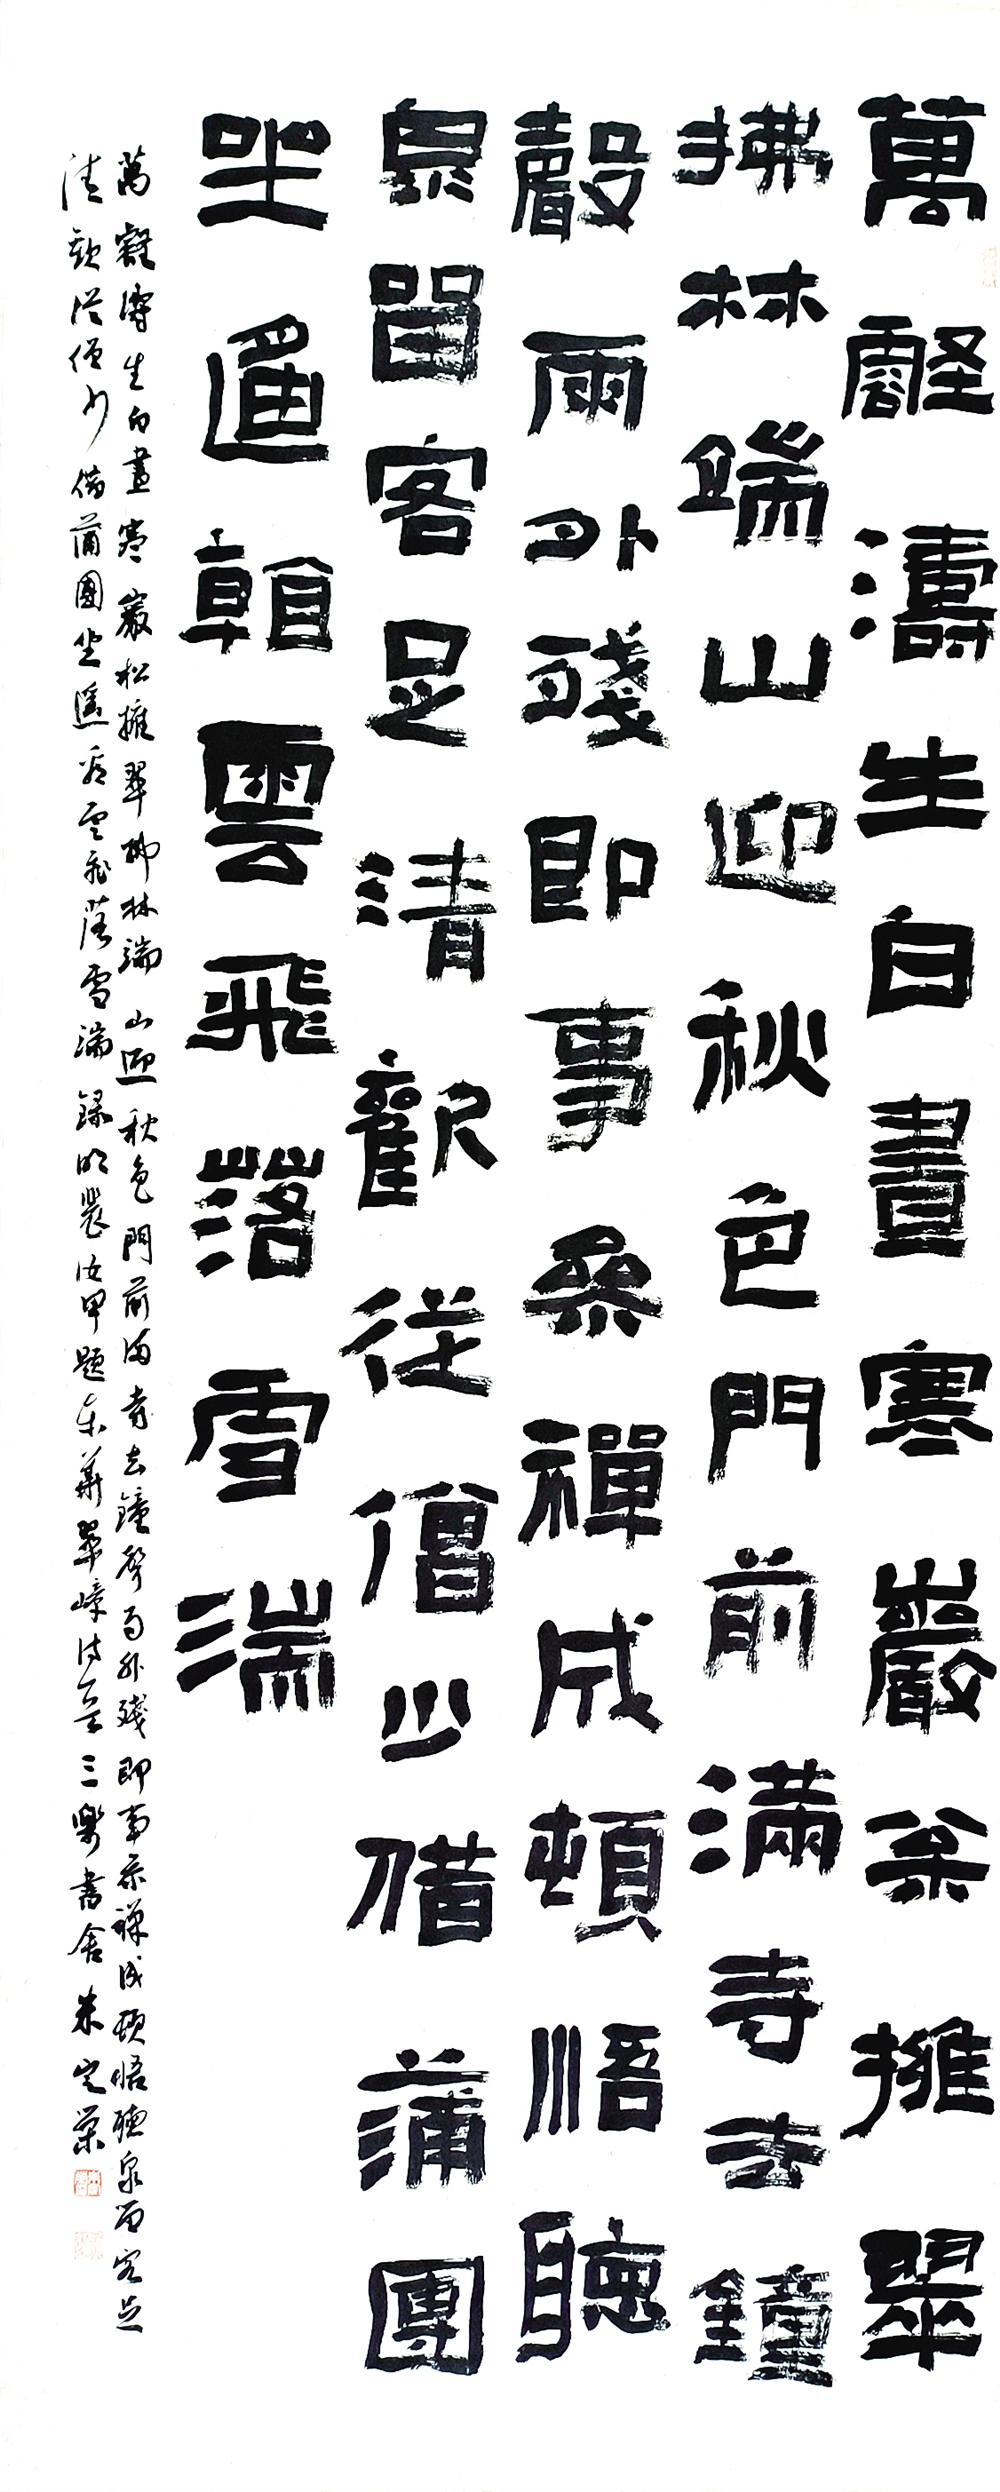 萬壑濤生白晝寒巖松擁翠
拂林端山迎秋色門前滿寺去鐘
聲雨外殘即事參禪成頓悟聽
泉留客足清歡從僧少借蒲團
坐遙看雲飛落雪湍
萬壑濤生白晝寒巖松擁翠拂林端山迎秋色門前滿寺去鐘聲雨外殘即事參禪成頓悟聽泉留客足
清歡從僧少借蒲團坐遙看雲飛落雪湍錄明裴汝甲題東華翠嶂詩三樂書舍朱定榮